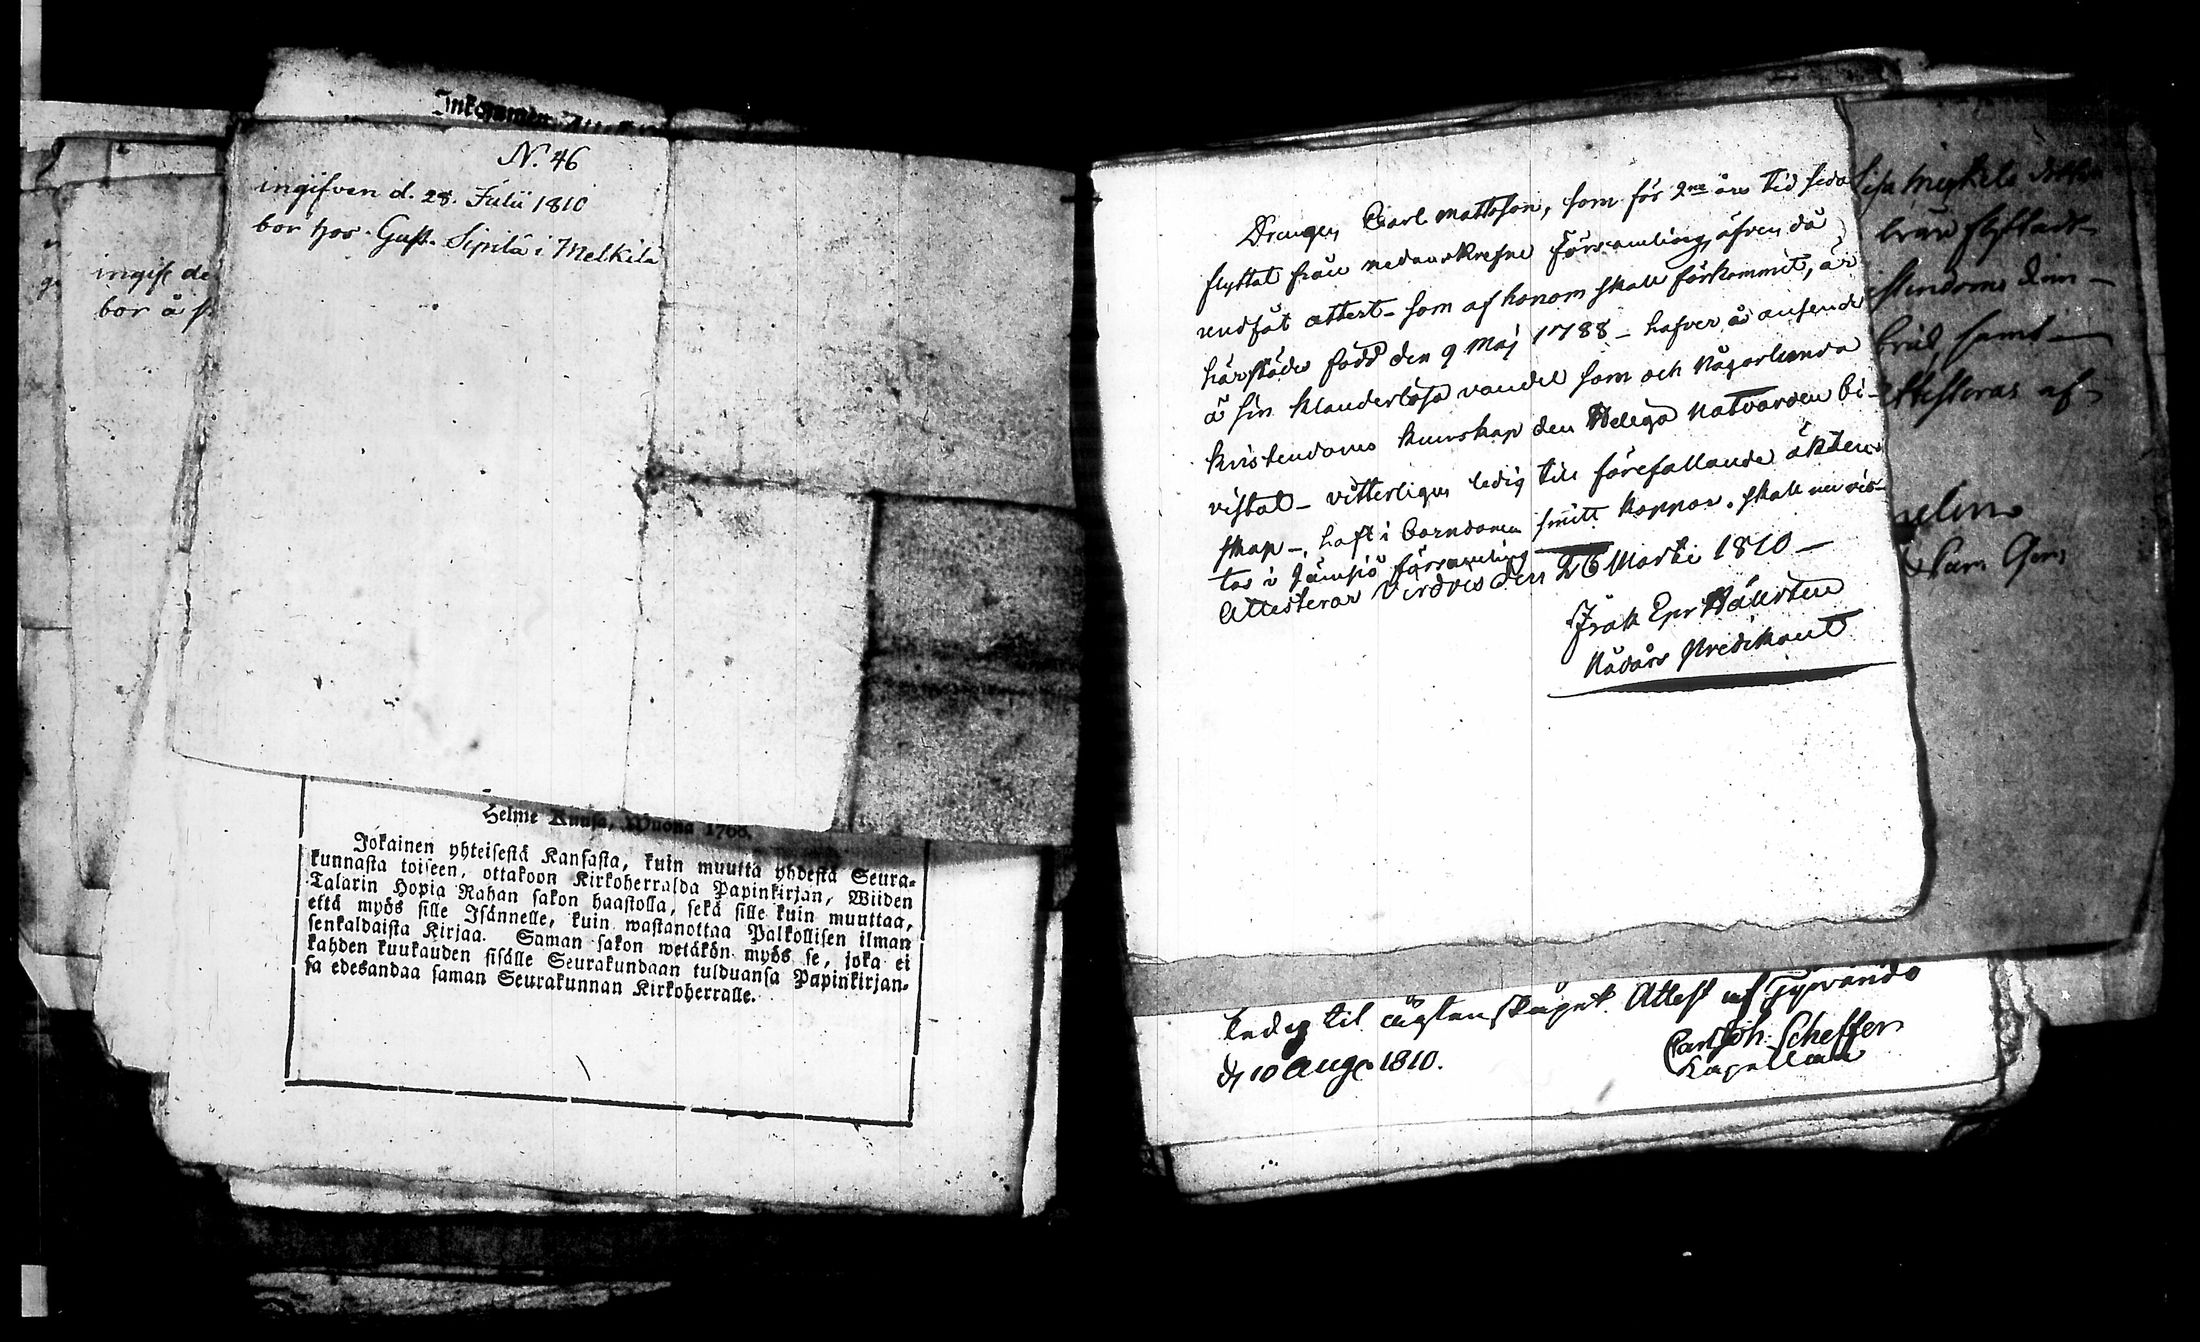 Inkommen
N. 46
ingifven d. 28. Julii 1810
bor hos Gust. Sipilä i Melkilä
ingift de
bor å
Helme Kuusa, Wuona 1766.
Jokainen yhteisestä Kansasta, kuin muutta yhdestä Seura-
kunnasta toiseen, ottakoon Kirkoherralda Papinkirjan, Wiiden
Talarin Hopia Rahan sakon haastolla, sekä sille kuin muuttaa,
että myös sille Isännelle, kuin wastanottaa Palkollisen ilman
senkaldaista Kirjaa. Saman sakon wetäkön myös se, joka ei
kahden kuukauden sisälle Seurakundaan tulduansa Papinkirjan-
sa edesandaa saman Seurakunnan Kirkoherralle.
Drengen Carl Mattsson, som för 2ne års tid seda
flyttat från nedanskrefne Församling, äfven då
undfåt attest - som af honom skall förkommit, är
härstädes född den 9 Maj 1788 - hafver i anseende
å sin klanderlösa vandel som och någorlunda
kristendoms kunskap den Helega Natvarden bi-
vistat - vitterligen ledig till förefallande äkten-
skap -, haft i barndomen smitt koppor. skall nu vis-
tas i Jämsiö församling
Attesterar Virdois den 26 Martii 1810 -
Isak Epr Hällsten
Nådårs Predikant
från flyttade
samt
attesteras af
ledig til ägtenskapet. Attest af Tyrvändö
d. 10 Aug. 1810.
Carl Joh. Scheffer
Kapellan